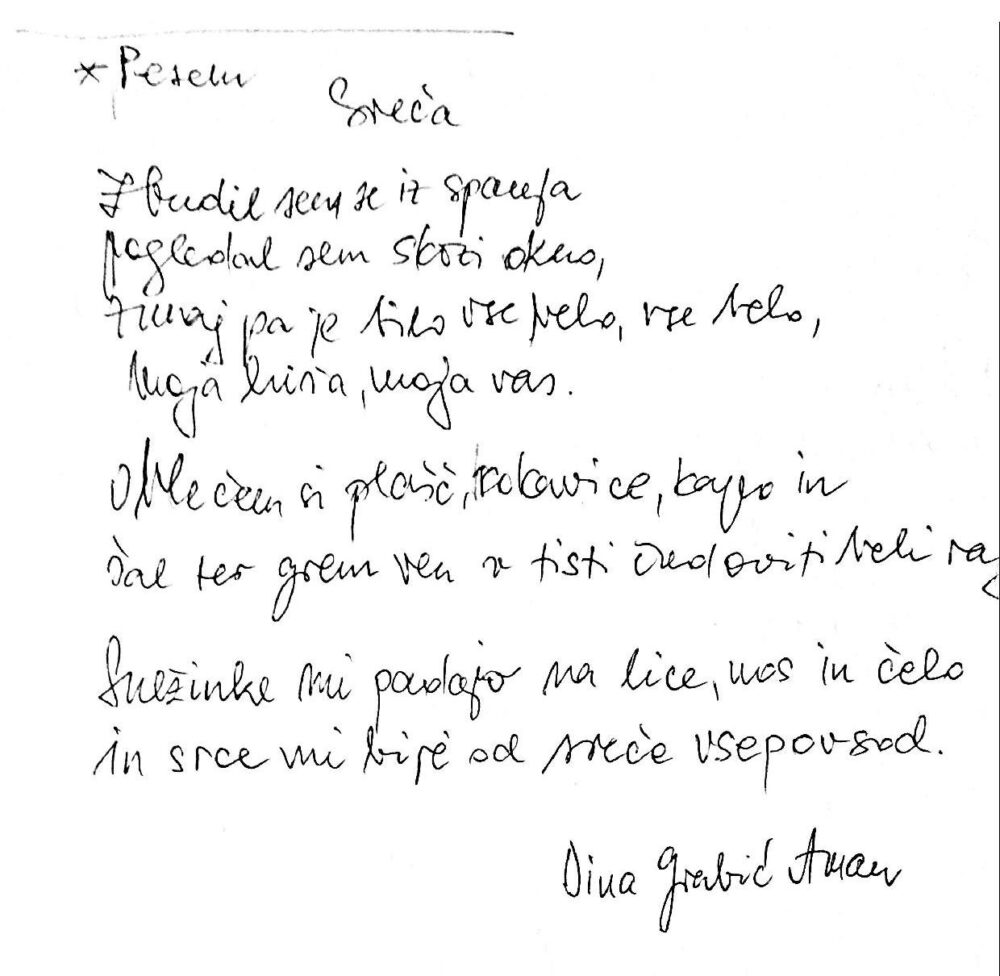 * Pesem
Sreča
Zbudil sem se iz spanja
pogledal sem skozi okno,
zunaj pa je bilo vse belo, vse belo,
moja hiša, moja vas.
Oblečem si plašč, rokavice, kapo in
šal ter grem ven v tisti čudoviti beli raj
Snežinke mi padajo na lice, nos in čelo
in srce mi bije od sreče vsepovsod.
Dina Grabić